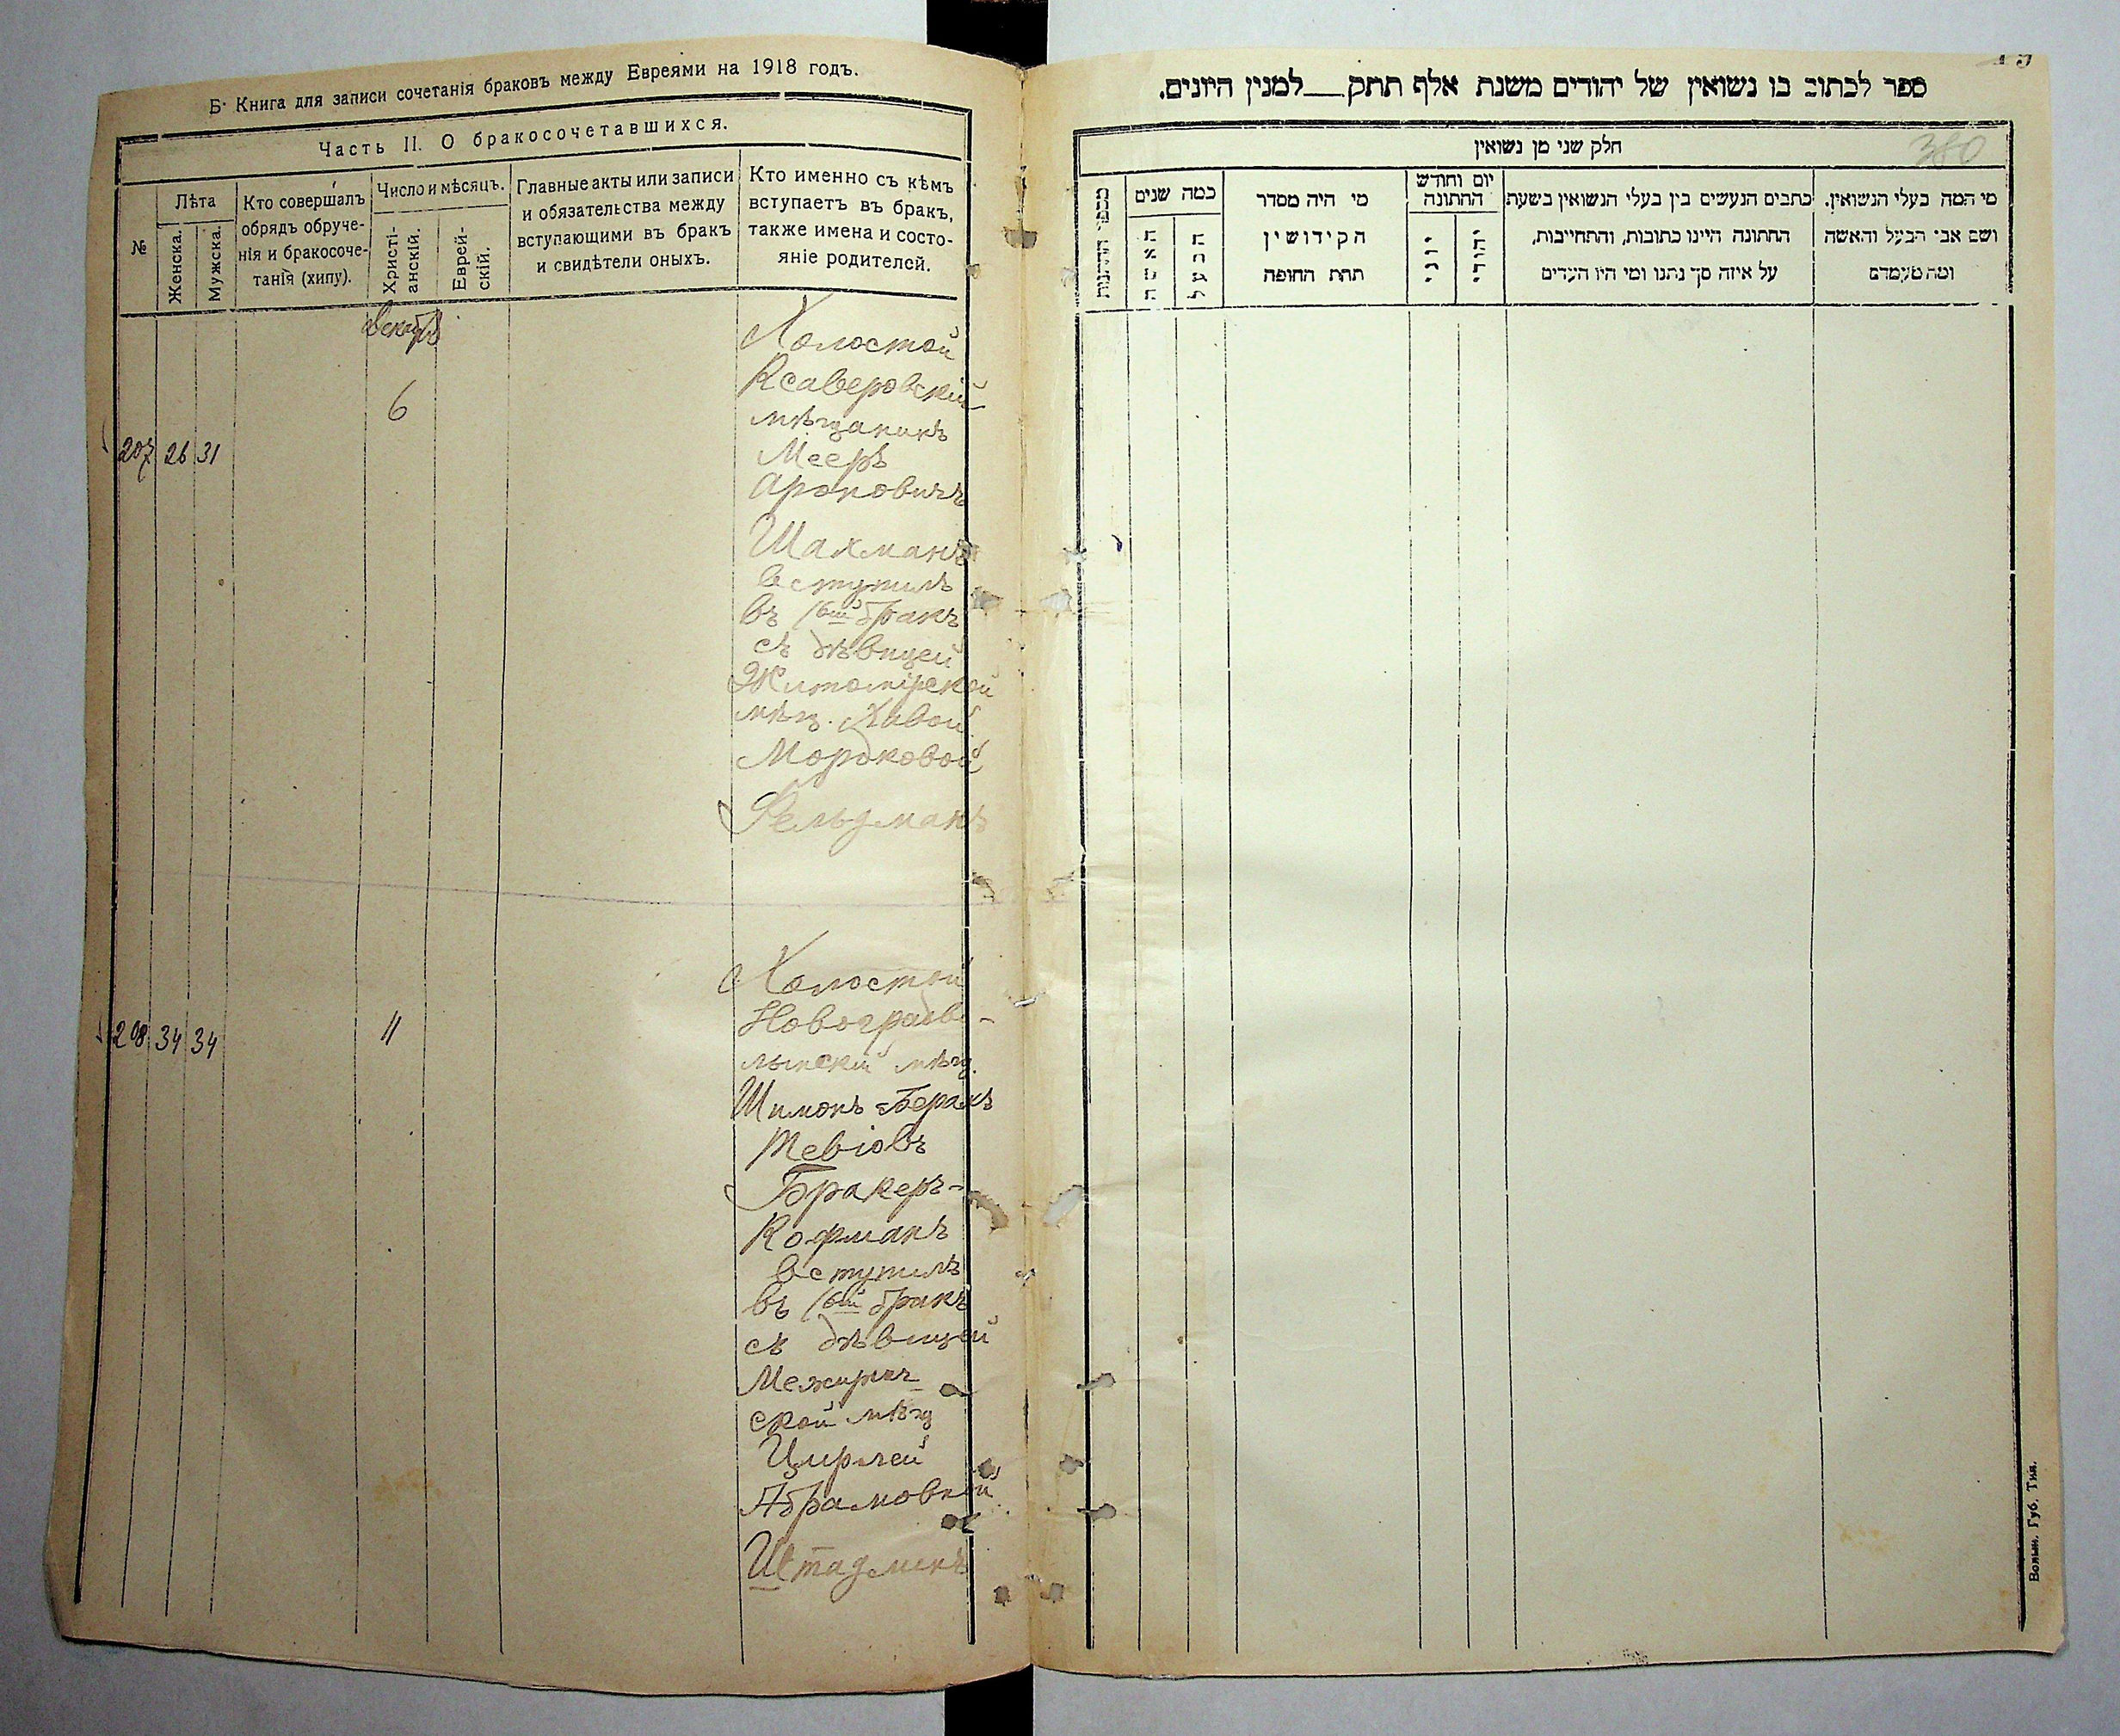 Б. Книга для записи сочетанія браковъ между Евреями на 1918 годъ.
Часть II. О бракосочетавшихся.
№
Лѣта
Женска.
Мужска.
Кто совершалъ
обрядъ обруче-
нія и бракосоче-
танія (хипу).
Число и мѣсяцъ.
Христі-
анскій.
Еврей-
скій.
Главные акты или записи
и обязательства между
вступающими въ бракъ
и свидѣтели оныхъ.
Кто именно съ кѣмъ
вступаетъ въ бракъ,
также имена и состо-
яніе родителей.
Декабрь
207 26 31
6
Холостой
Ксаверовскій
мѣщанинъ
Мееръ
Ароновичъ
Шахманъ
вступилъ
въ 1вый бракъ
съ дѣвицей
Житомірской
мѣщ. Хавой
Мордковой
Фельдманъ
208 34 34
11
Холостой
Новоградво-
лынскій мѣщ.
Шимонъ-Беръ
Тевіовъ
Бракеръ-
Кофманъ
вступилъ
въ 1вый бракъ
съ дѣвицей
Межирич-
ской мѣщ
Цирлей
Абрамовной
ספר לכתוב בו נשואין של יהודים משנת אלף תתק__למנין היונים.
380
חלק שני מן נשואין
מספר החתונות
כמה שנים
האשה
הבעל
מי היה מסדר
הקידושין
תחת החופה
יום וחודש
החתונה
יוני
יהודי
כתבים הנעשים בין בעלי הנשואין בשעת
החתונה היינו כתובות, והתחייבות,
על איזה סך נתנו ומי היו העדים
מי המה בעלי הנשואין.
ושם אבי הבעל והאשה
ומה מעמדם
Волын. Губ. Тип.